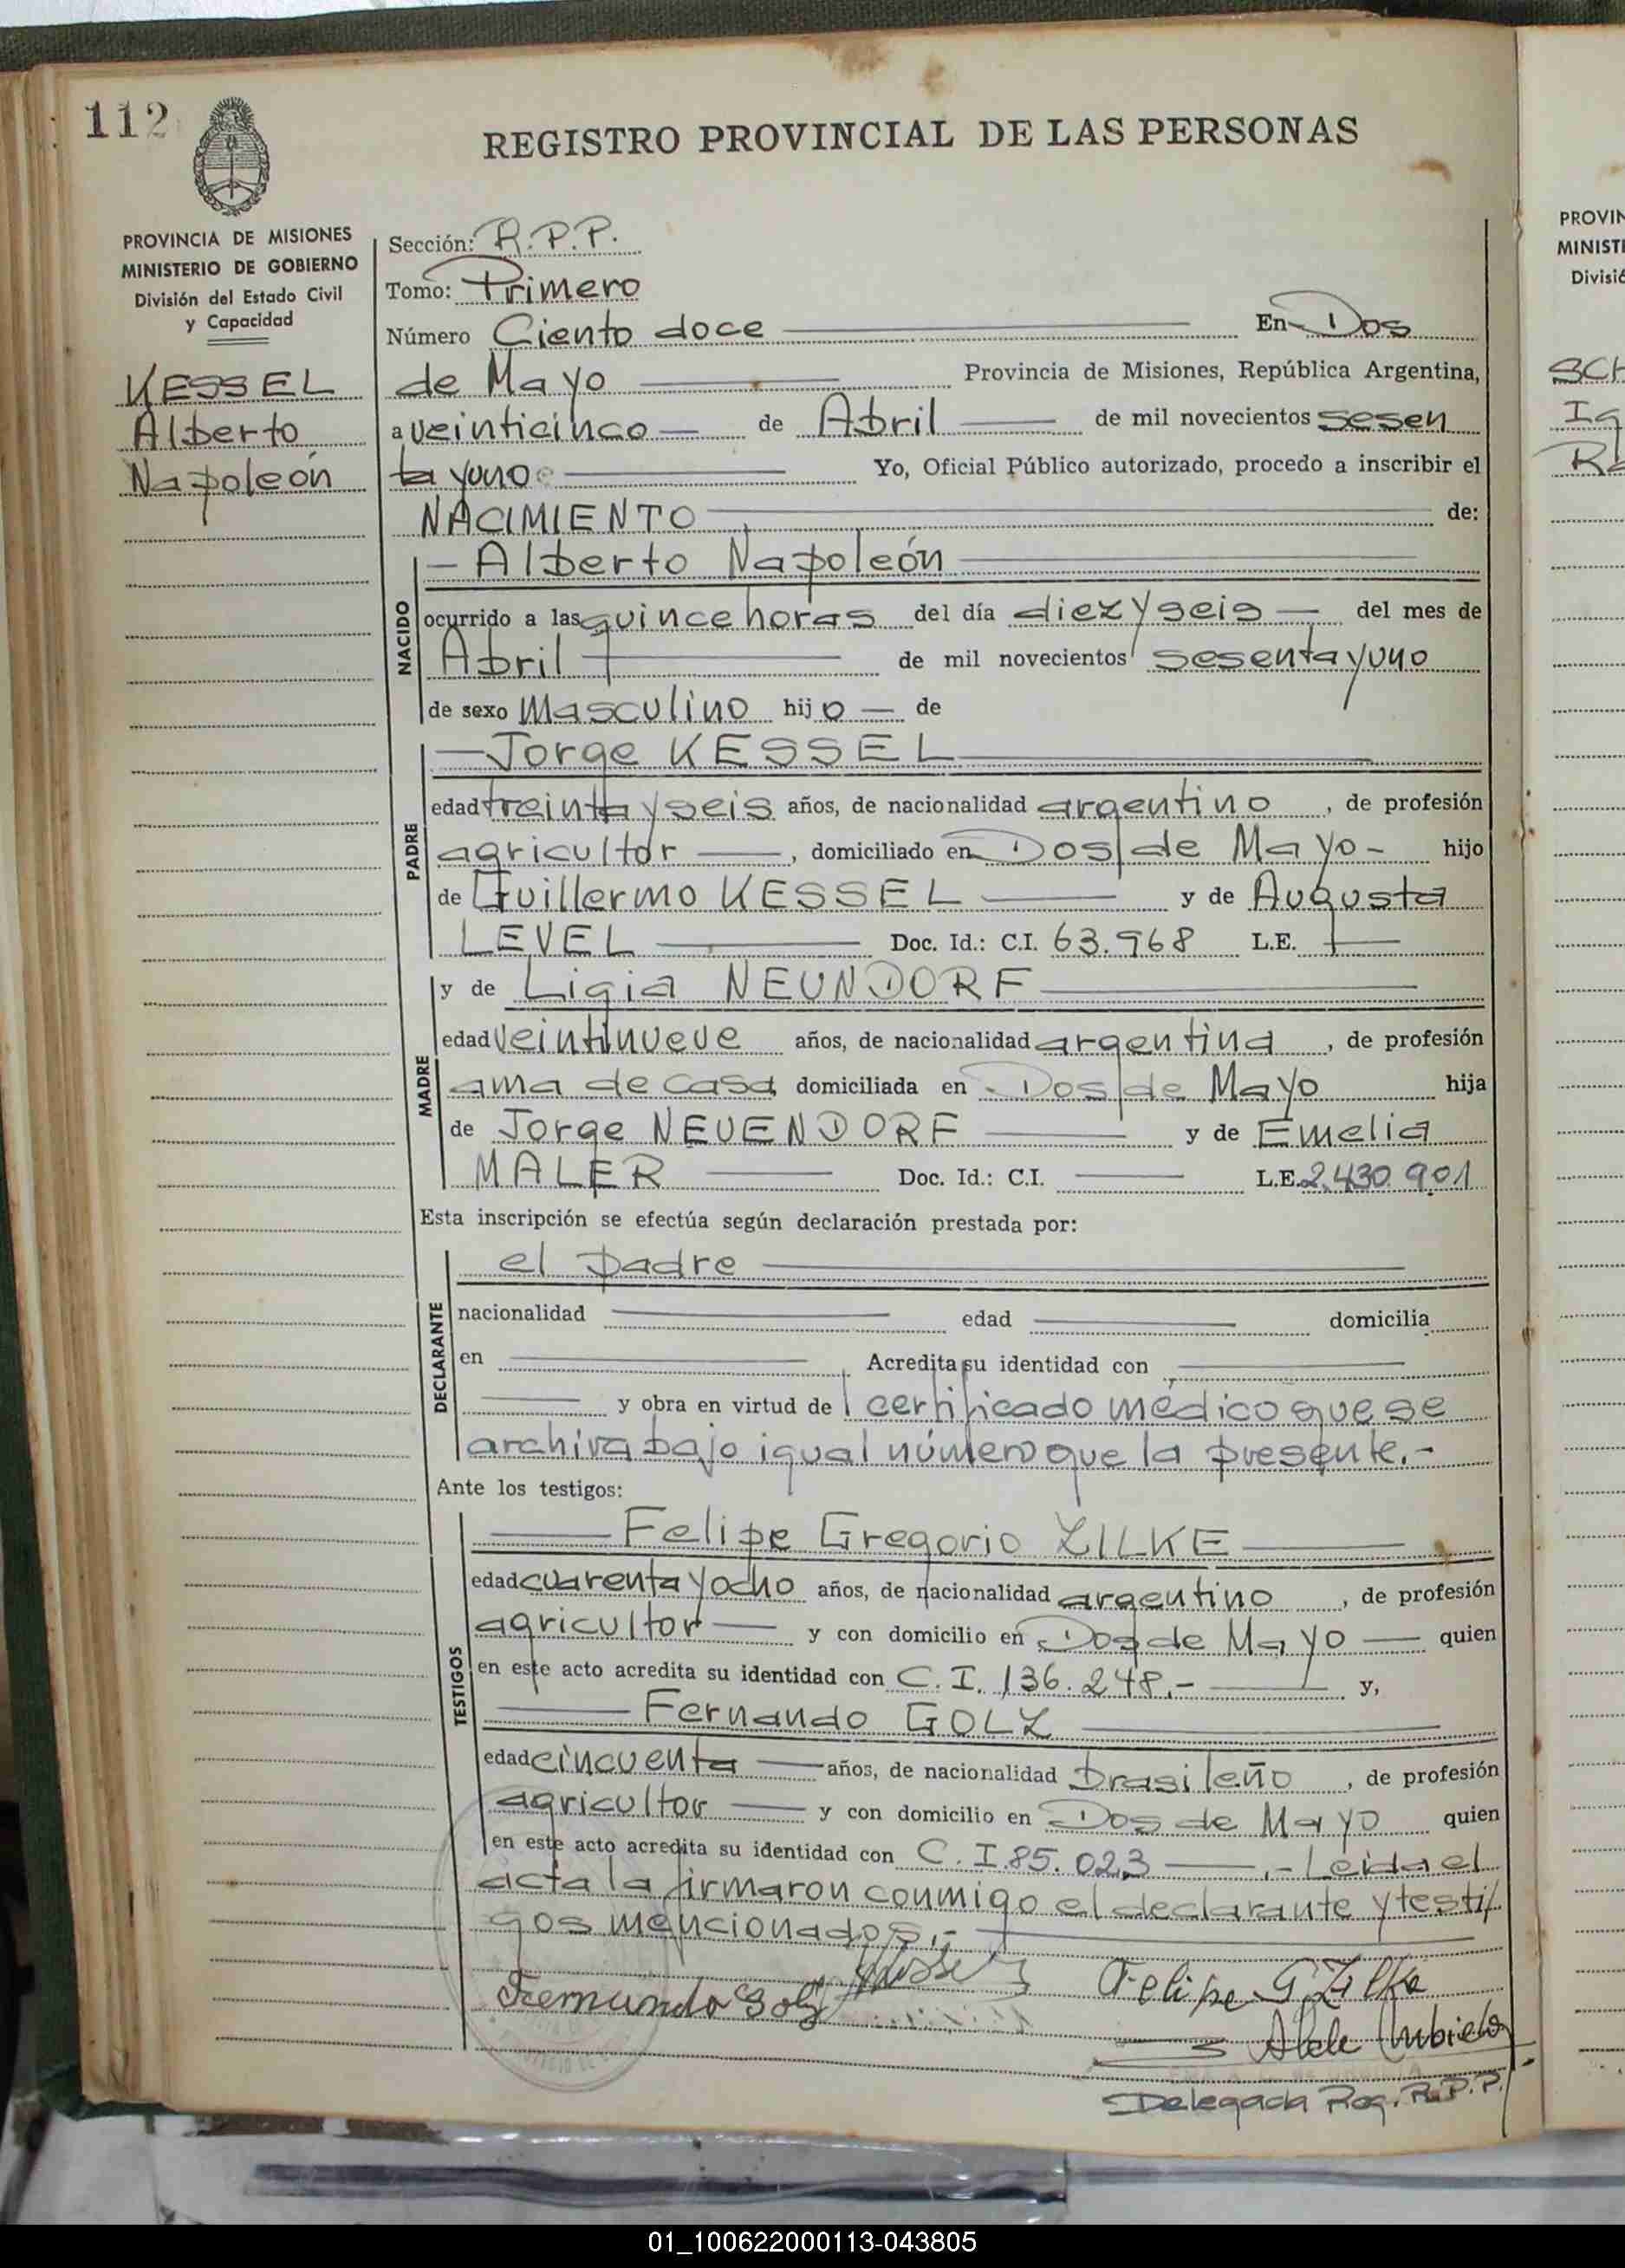 112
REGISTRO PROVINCIAL DE LAS PERSONAS
PROVINCIA DE MISIONES
MINISTERIO DE GOBIERNO
División del Estado Civil
y Capacidad
KESSEL
Alberto
Napoleón
Sección: R.P.P.
Tomo: Primero
Número Ciento doce En Dos
de Mayo Provincia de Misiones, República Argentina,
a veinticinco de Abril de mil novecientos sesen
ta y uno Yo, Oficial Público autorizado, procedo a inscribir el
NACIMIENTO de:
NACIDO
Alberto Napoleón
ocurrido a las quince horas del día diez y seis del mes de
Abril de mil novecientos sesenta y uno
de sexo Masculino hijo de
PADRE
Jorge KESSEL
edad treinta y seis años, de nacionalidad argentino, de profesión
agricultor, domiciliado en Dos de Mayo- hijo
de Guillermo KESSEL y de Augusta
LEVEL Doc. Id.: C.I. 63.968 L.E.
MADRE
y de Ligia NEUNDORF
edad veintinueve años, de nacionalidad argentina, de profesión
ama de casa, domiciliada en Dos de Mayo hija
de Jorge NEUENDORF y de Emelia
MALER Doc. Id.: C.I. L.E. 2.430.901
Esta inscripción se efectúa según declaración prestada por:
DECLARANTE
el padre
nacionalidad edad domicilia
en Acredita su identidad con
y obra en virtud de certificado médico que se
archiva bajo igual número que la presente.-
Ante los testigos:
TESTIGOS
Felipe Gregorio ZILKE
edad cuarenta y ocho años, de nacionalidad argentino, de profesión
agricultor y con domicilio en Dos de Mayo quien
en este acto acredita su identidad con C.I. 136.248.- y,
Fernando GOLZ
edad cincuenta años, de nacionalidad brasileño, de profesión
agricultor y con domicilio en Dos de Mayo quien
en este acto acredita su identidad con C.I. 85.023 .- Leida el
acta la firmaron conmigo el declarante y testi
gos mencionados.-
Felipe G. Zilke
Delegada Reg. R.P.P.
PROVIN
MINISTE
Divisió
SCH
Ig
01_100622000113-043805